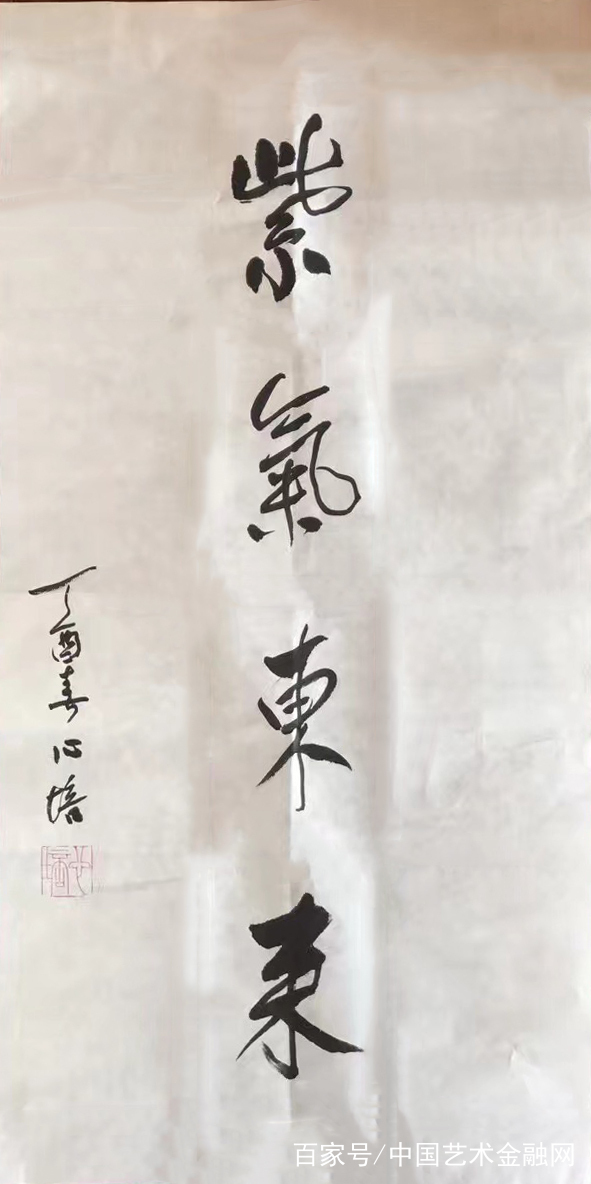 紫氣東来
丁酉春心培
百家号/中国艺术金融网